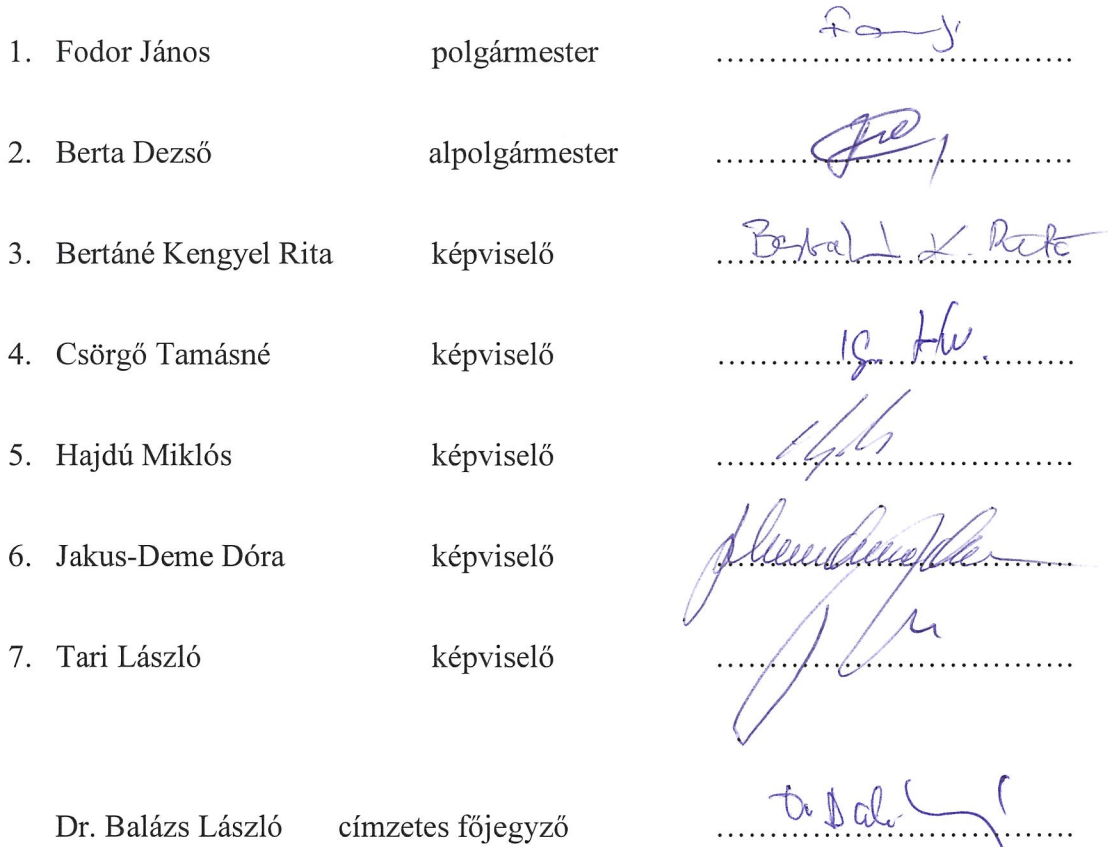 1. Fodor János polgármester ....................................
2. Berta Dezső alpolgármester ....................................
3. Bertáné Kengyel Rita képviselő ....................................
4. Csörgő Tamásné képviselő ....................................
5. Hajdú Miklós képviselő ....................................
6. Jakus-Deme Dóra képviselő ....................................
7. Tari László képviselő ....................................
Dr. Balázs László címzetes főjegyző ....................................